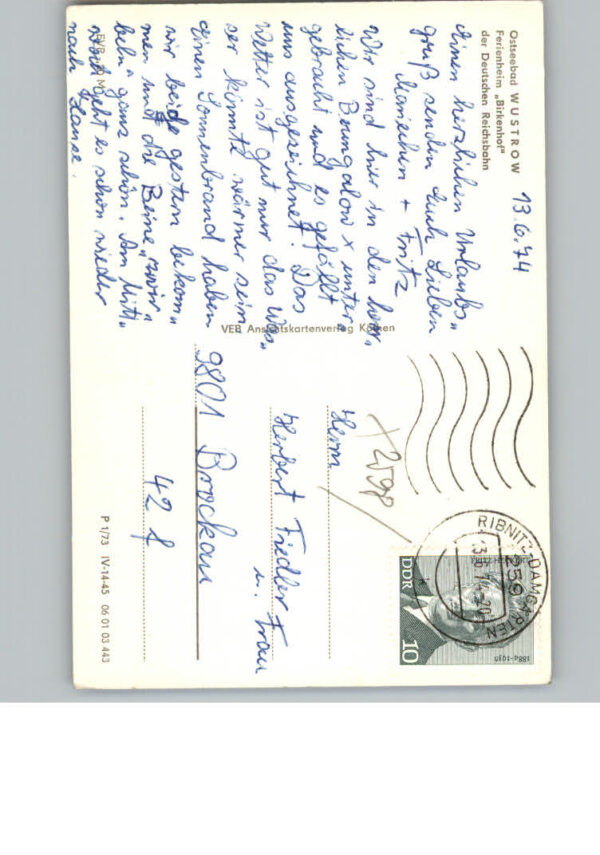 Ostseebad WUSTROW
Ferienheim „Birkenhof"
der Deutschen Reichsbahn
13.6.74
Einen herzlichen Urlaubs„
gruß senden Euch Lieben
Mariechen + Fritz
Wir sind hier in den herr„
lichen Bungalow x unter„
gebracht und es gefällt
uns ausgezeichnet. Das
Wetter ist gut nur das Was„
ser könnte wärmer sein
einen Sonnenbrand haben
wir beide gestern bekom„
men und die Beine
ganz schön. Am
geht es schon wieder
nach Hause.
EVP
VEB Ansichtskartenverlag Köthen
x 2598
Herrn
Herbert Fiedler
u. Frau
9801 Brockau
42 f
P 1/73 IV-14-45 06 01 03 443
RIBNITZ-DAMGARTEN
259
DDR
10